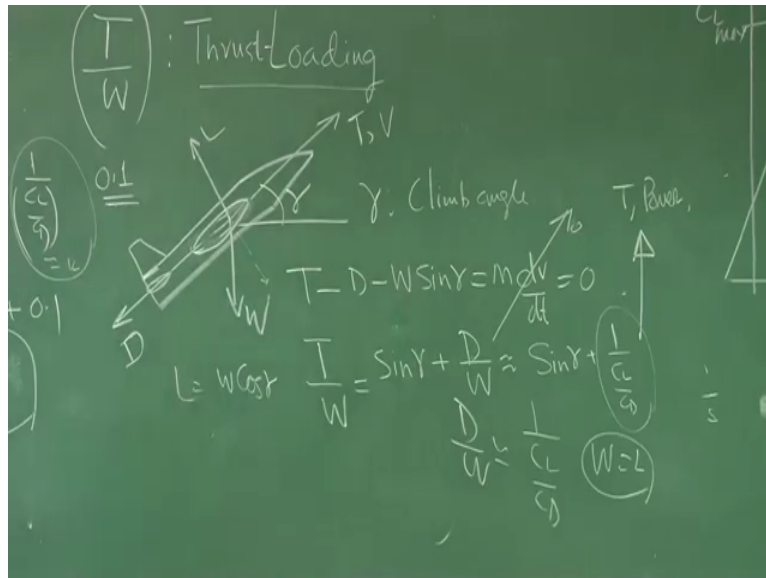 T/W : Thrust Loading
CL max
L
T, V
1/(CL/CD)
0.1
γ
γ: Climb angle
T, Power,
0
T - D - W Sinγ = m dv/dt = 0
+ 0.1
W
D
L = W Cosγ
T/W = Sinγ + D/W ≈ Sinγ + 1/(CL/CD)
D/W ≈ 1/(CL/CD)
W = L